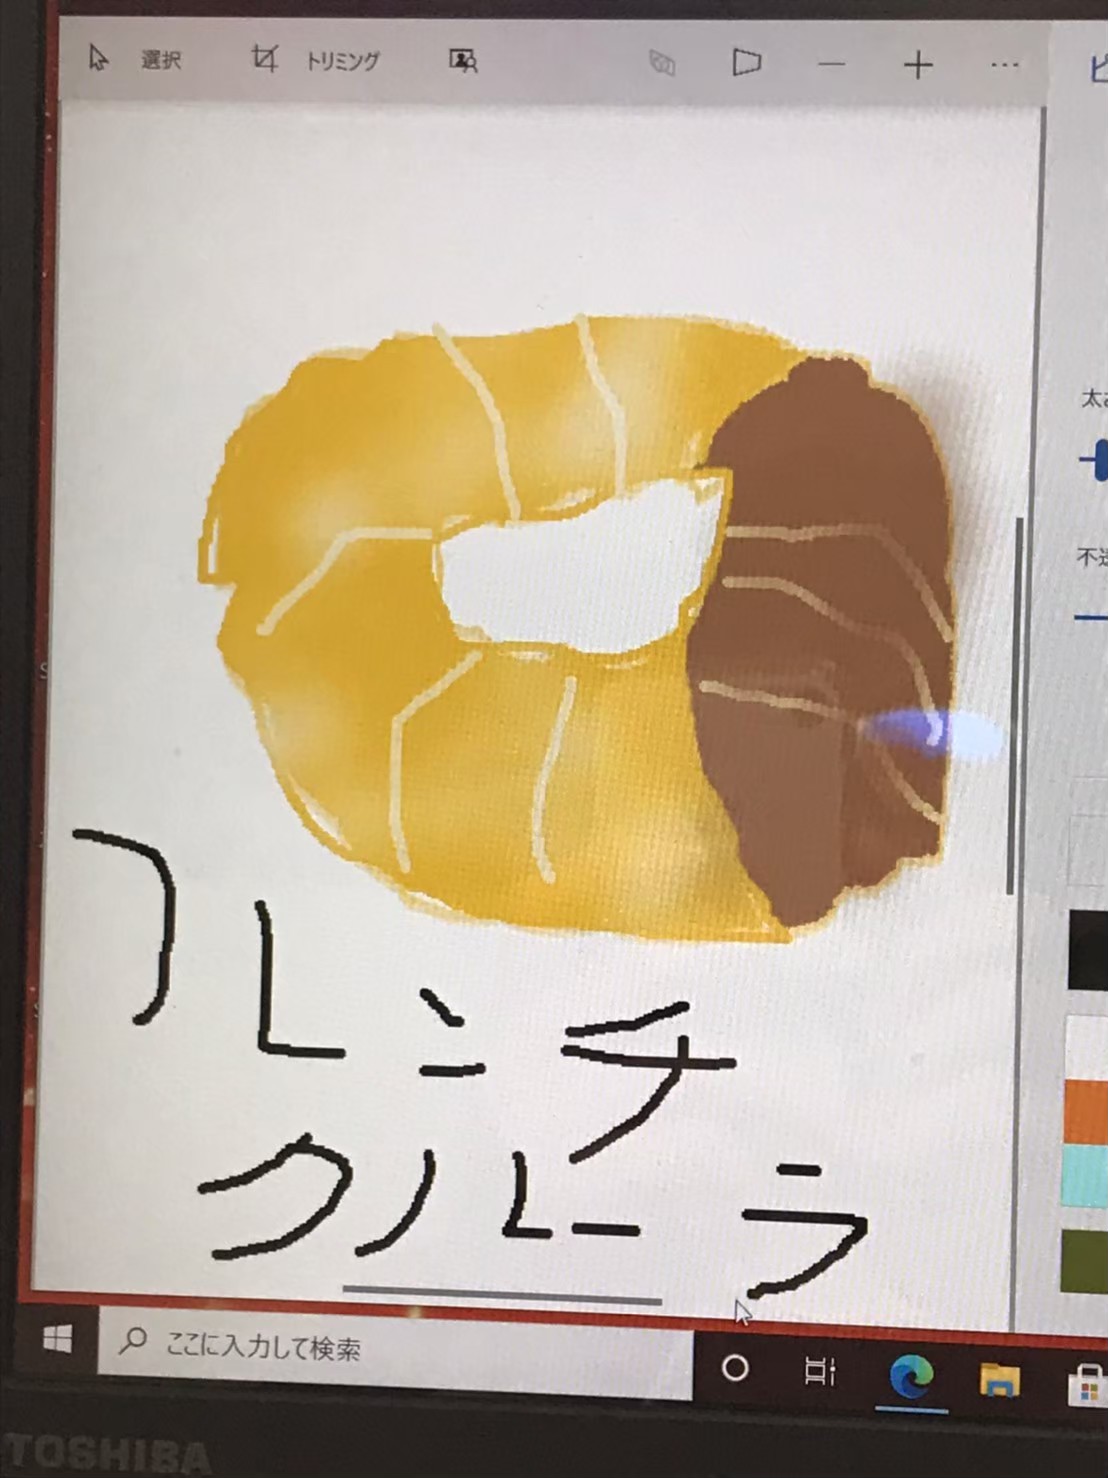 選択 トリミング
フレンチ
クルーラ
ここに入力して検索
TOSHIBA